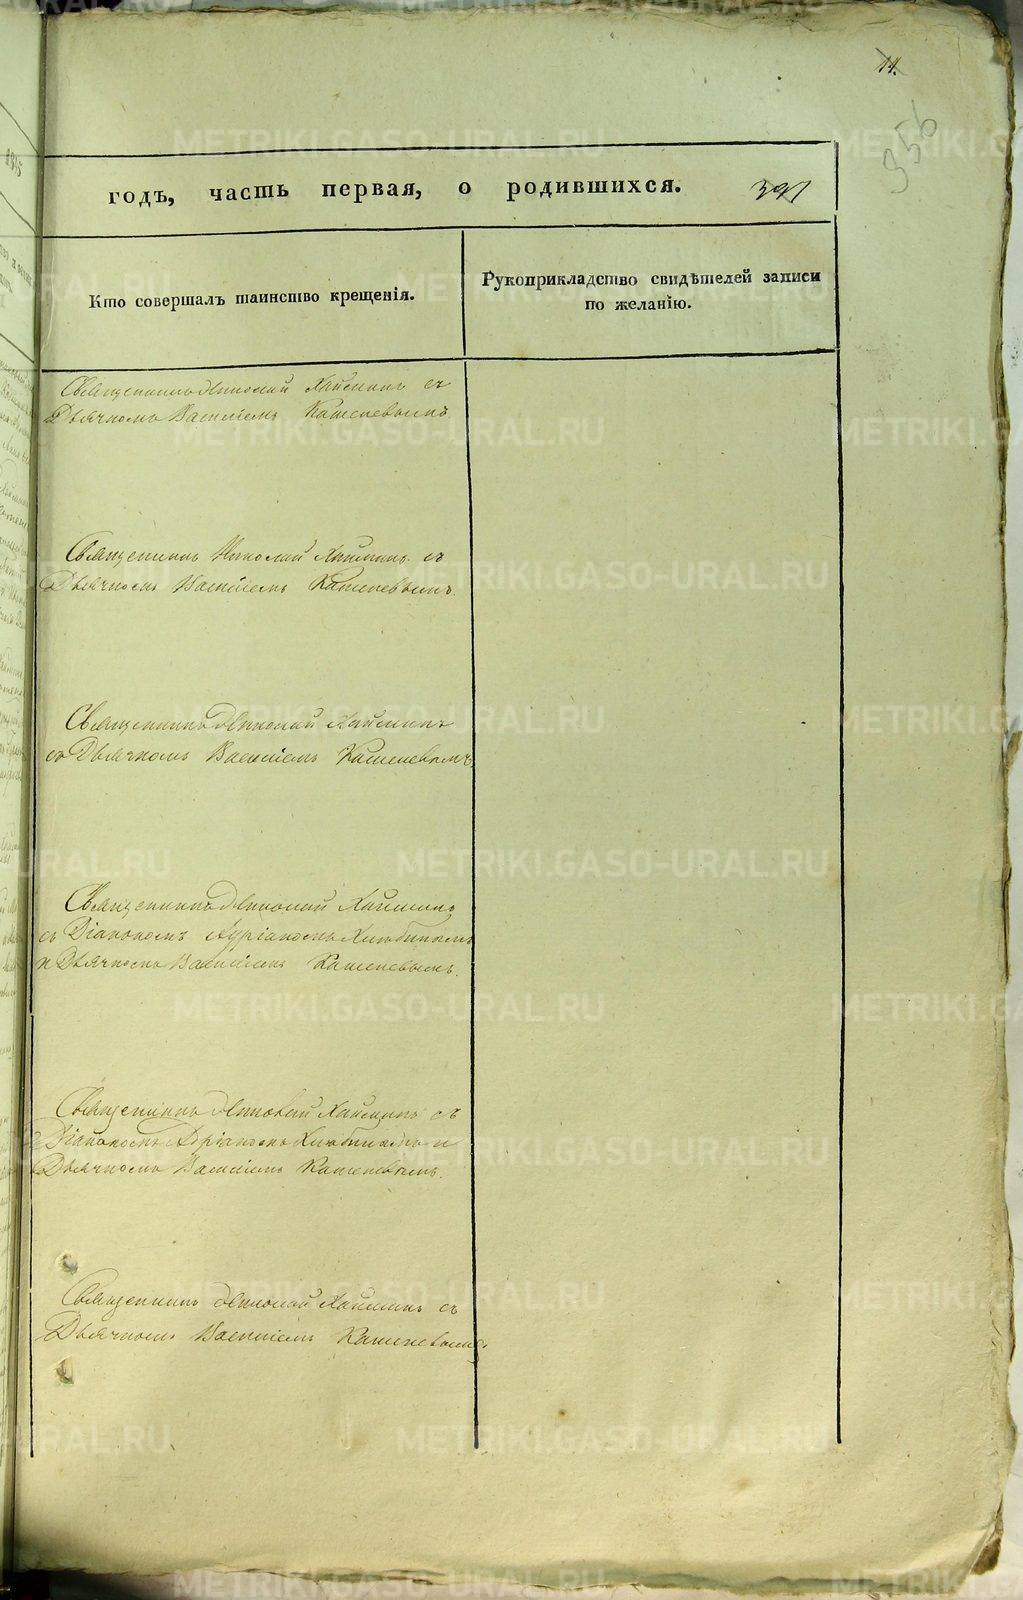 11.
356
годъ, часть первая, о родившихся. 391
Кто совершалъ таинство крещенія.
Рукоприкладство свидѣтелей записи
по желанію.
Священникъ Николай с
Дьячкомъ Василіемъ Кашеневымъ
Священникъ Николай съ
Дьячкомъ Василіемъ Кашеневымъ.
Священникъ Николай
съ Дьячкомъ Василіемъ Кашеневымъ
Священникъ Николай
съ Діакономъ Адріаномъ
и Дьячкомъ Василіемъ Кашеневымъ.
Священникъ Николай съ
Діакономъ Адріаномъ и
Дьячкомъ Василіемъ Кашеневымъ.
Священникъ Николай съ
Дьячкомъ Василіемъ Кашеневымъ.
METRIKI.GASO-URAL.RU